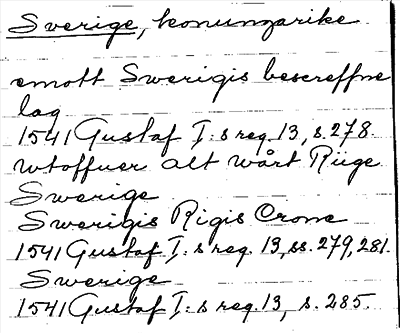 Sverige, konungarike
emott Swerigis bescreffne
lag
1541 Gustaf I:s reg. 13, s. 278.
wtoffuer alt wårt Rüge
Swerige
Swerigis Rigis Crone
1541 Gustaf I:s reg. 13, ss. 279, 281.
Swerige
1541 Gustaf I:s reg. 13, s. 285.